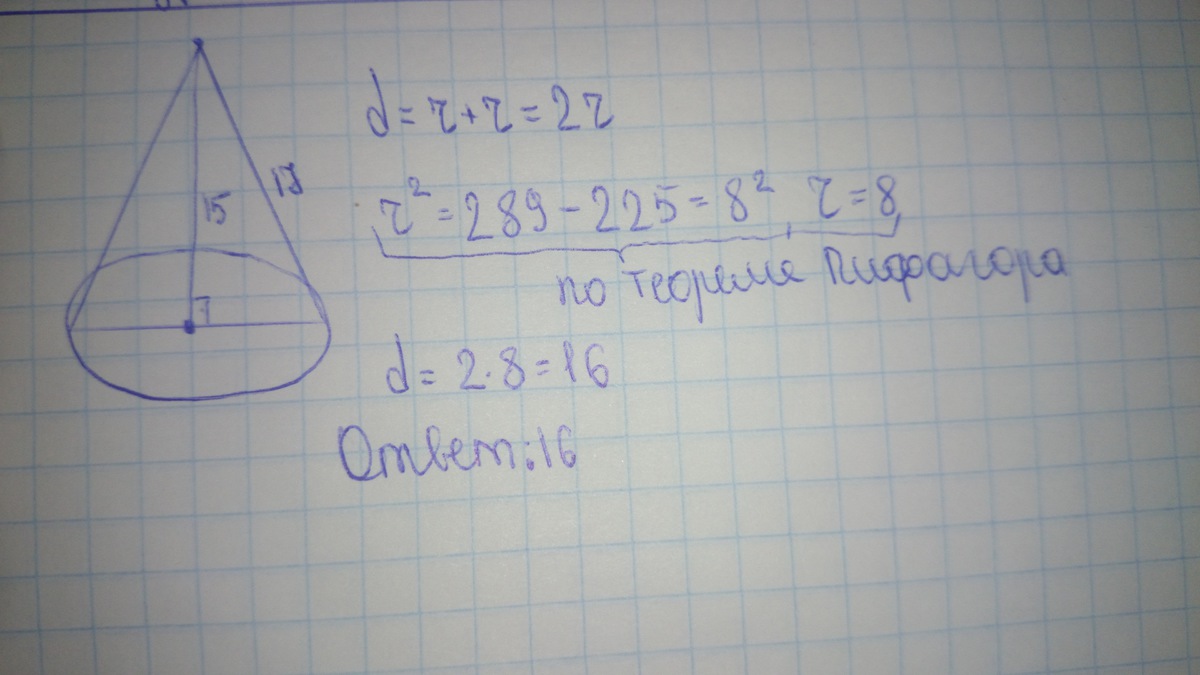 d = r + r = 2r
15
17
r² = 289 - 225 = 8², r = 8
по теореме Пифагора
d = 2 · 8 = 16
Ответ: 16